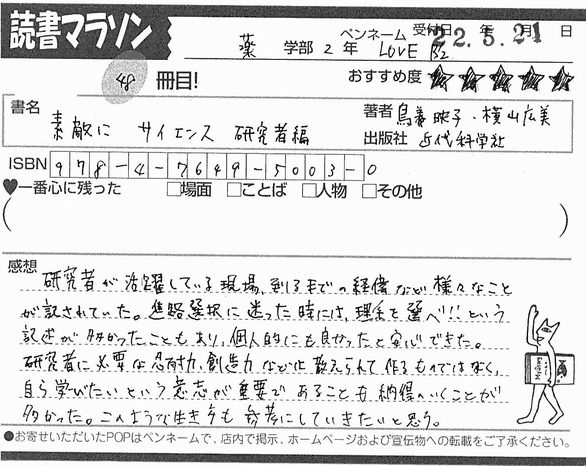 読書マラソン
薬 学部 2 年 ペンネーム LOVE 受付日 年 月 日
22.5.21
48 冊目!
おすすめ度 ★★★★★
書名 素敵に サイエンス 研究者編
著者 鳥養映子・横山広美
出版社 近代科学社
ISBN 978-4-7649-5003-0
♥一番心に残った □場面 □ことば □人物 □その他
( )
感想
研究者が活躍している現場、到るまでの経偉など様々なこと
が記されていた。進路選択に迷った時には、理系を選べ!!という
記述が多かったこともあり、個人的にも良かったと安心できた。
研究者に必要な忍耐力、創造力などは教えられて作るものではなく、
自ら学びたいという意志が重要であることも納得いくことが
多かった。このような生き方も参考にしていきたいと思う。
●お寄せいただいたPOPはペンネームで、店内で掲示、ホームページおよび宣伝物への転載をご了承ください。